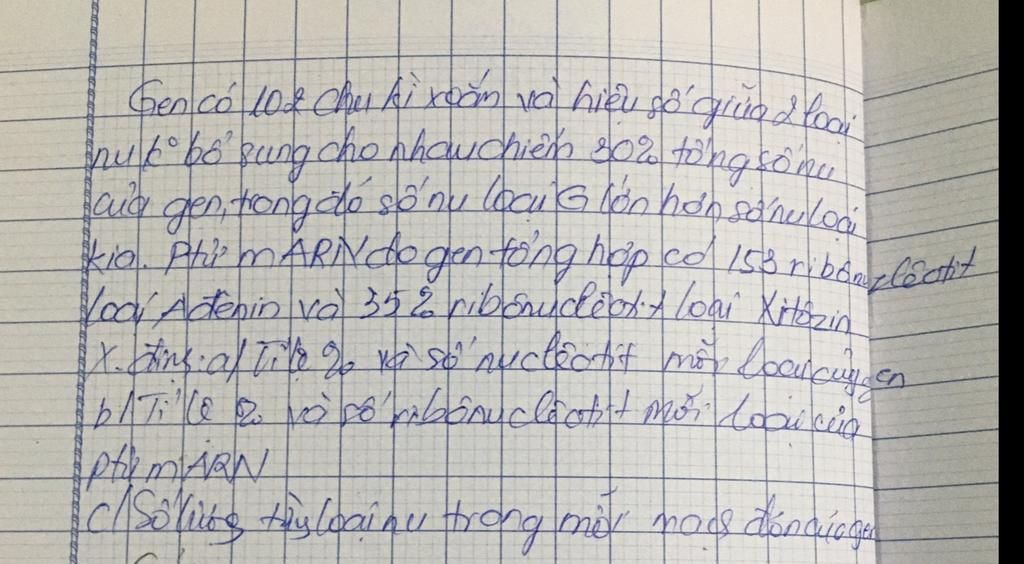 Gen có 102 chu kì xoắn và hiệu số giữa 2 loại
nu k° bổ sung cho nhau chiếm 30% tổng số nu
của gen, trong đó số nu loại G lớn hơn số nu loại
kia. Ptử mARN do gen tổng hợp có 153 ribônuclêôtit
loại Ađênin và 35% ribônuclêôtit loại Xitôzin
X. định: a/ Tỉ lệ % và số nuclêôtit mỗi loại của gen
b/ Tỉ lệ % và số ribônuclêôtit mỗi loại của
ptử mARN
c/ Số lượng từng loại nu trong mỗi mạch đơn của gen